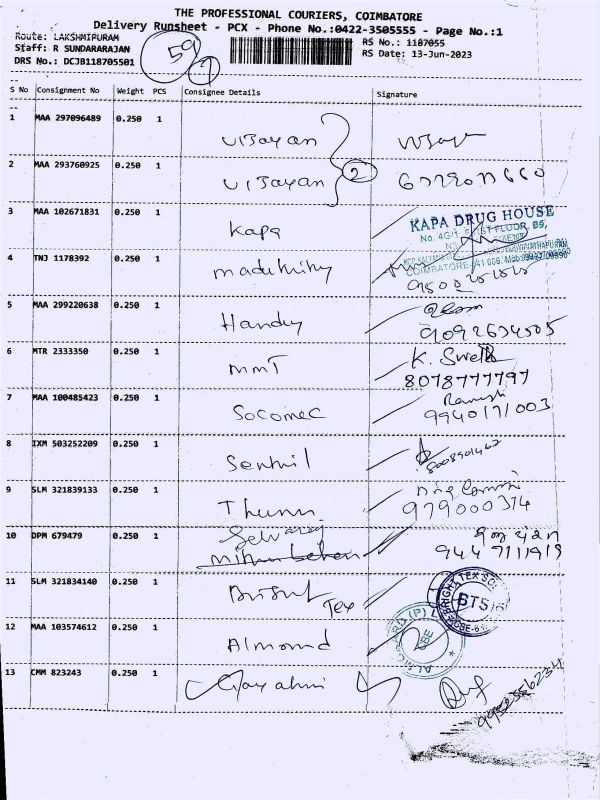 THE PROFESSIONAL COURIERS, COIMBATORE
Delivery Runsheet - PCX - Phone No.:0422-3505555 - Page No.:1
Route: LAKSHMIPURAM
RS No.: 1187055
Staff: R SUNDARARAJAN
RS Date: 13-Jun-2023
DRS No.: DCJB118705501
59
S No Consignment No Weight PCS Consignee Details Signature
1 MAA 297096489 0.250 1 Vijayan
2 MAA 293760925 0.250 1 Vijayan 2
3 MAA 102671831 0.250 1 Kapa
KAPA DRUG HOUSE
4 TNJ 1178392 0.250 1
COIMBATORE
5 MAA 299220638 0.250 1 Handy
9092634505
6 MTR 2333350 0.250 1 MMT K.
8078777797
7 MAA 100485423 0.250 1 Socomec Ramesh
9940171003
8 IXM 503252209 0.250 1 Senthil
8008901462
9 SLM 321839133 0.250 1
979000374
10 DPM 679479 0.250 1 Selvaraj
9447111919
11 SLM 321834140 0.250 1 Bright Tex
BRIGHT TEX
BTS
12 MAA 103574612 0.250 1 Almond
13 CMM 823243 0.250 1